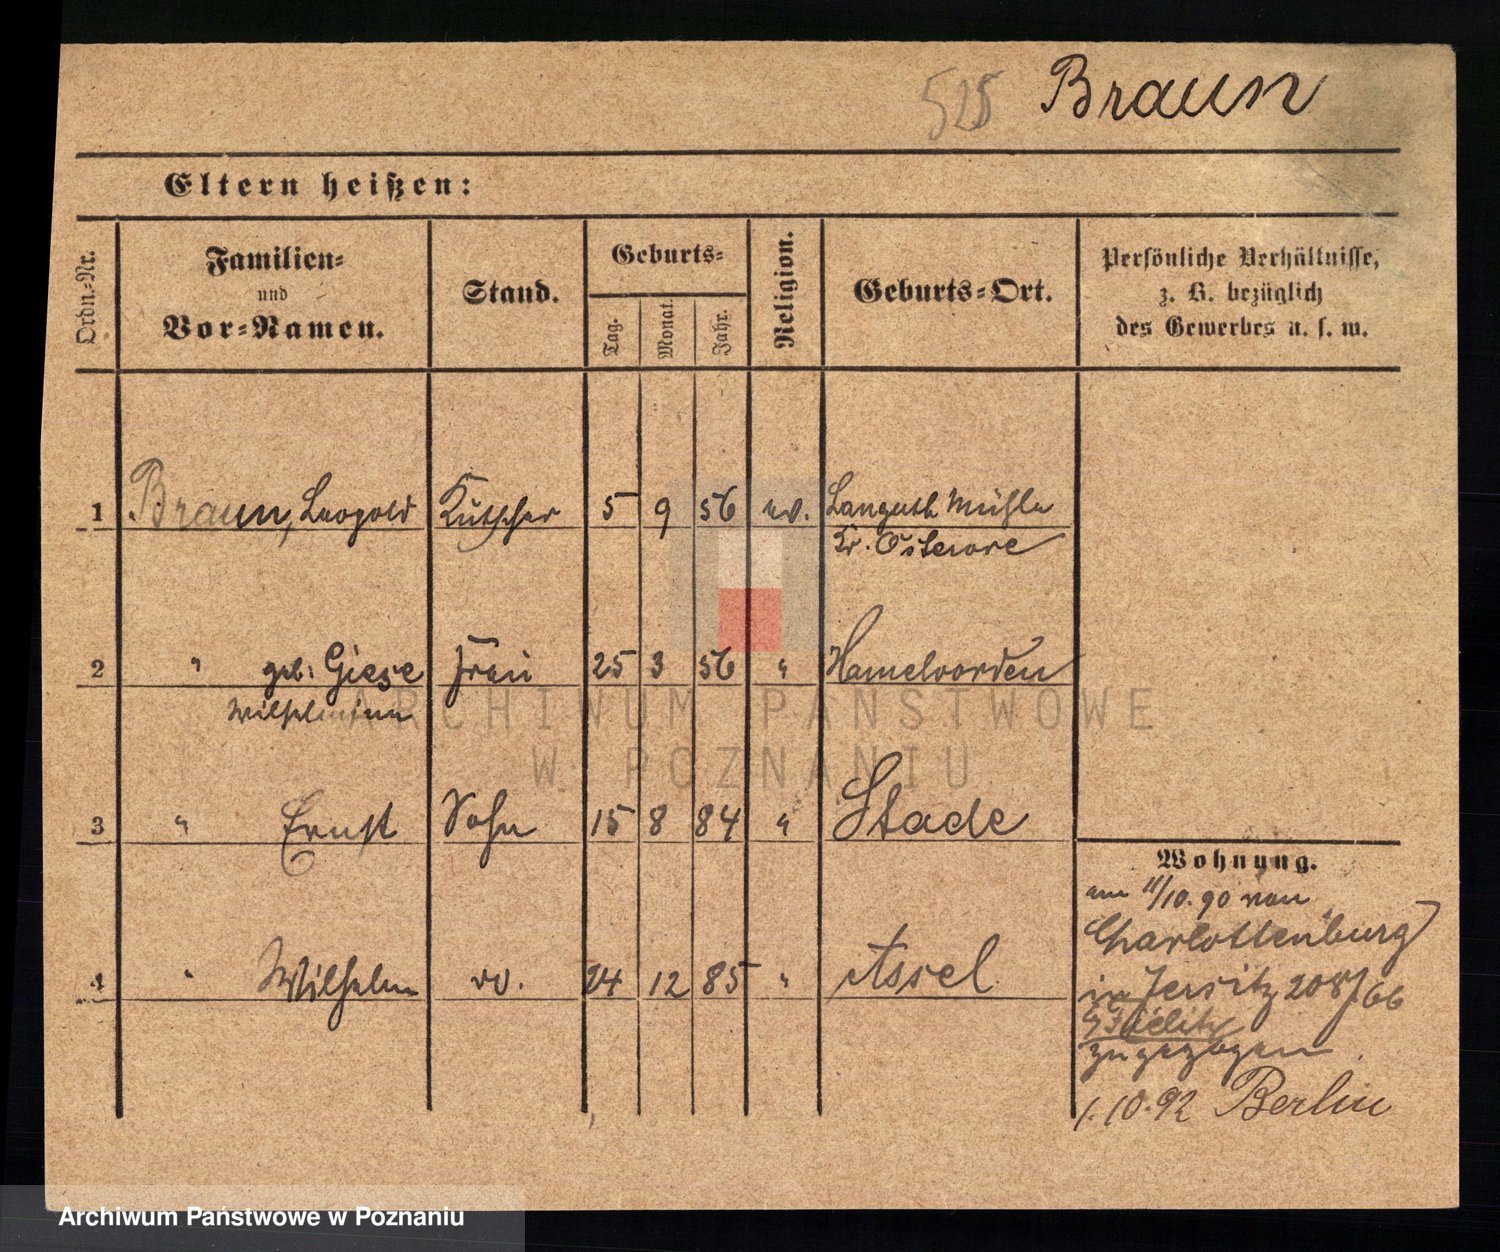 525 Braun
Eltern heißen:
Ordn.-Nr.
Familien-
und
Vor-Namen.
Stand.
Geburts-
Tag.
Monat.
Jahr.
Religion.
Geburts-Ort.
Persönliche Verhältnisse,
z. B. bezüglich
des Gewerbes u. s. w.
1 Braun, Leopold Kutscher 5 9 56 ev. Languth Mühle
Kr. Osterore
2 " geb: Giese Frau 25 3 56 " Hamelvorden
Wilhelmine
3 " Ernst Sohn 15 8 84 " Stade
4 " Wilhelm do. 24 12 85 " Assel
Wohnung.
am 11/10.90 von
Charlottenburg
in Jersitz 208/66
zugezogen
1.10.92 Berlin
ARCHIWUM PAŃSTWOWE
W POZNANIU
Archiwum Państwowe w Poznaniu